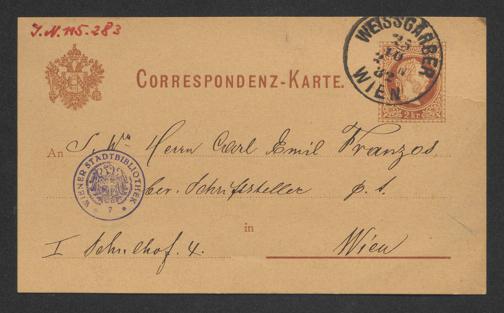 J.N. 115.283
CORRESPONDENZ-KARTE.
WEISSGÄRBER
WIEN
2 Kr.
An S. Wn Herrn Carl Emil Franzos
WIENER STADTBIBLIOTHEK
Schriftsteller p. t.
in
I Schulhof. 4. Wien